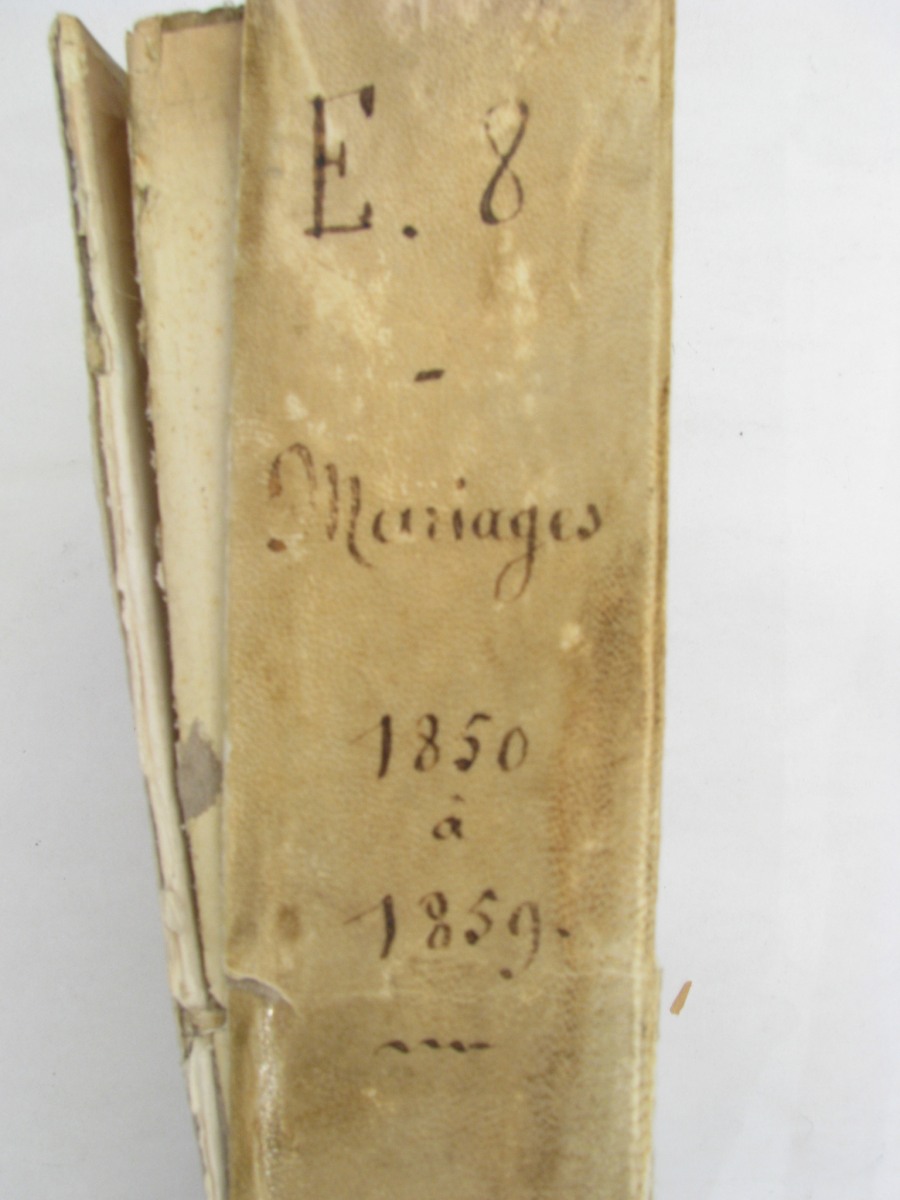 E. 8
-
Mariages
1850
à
1859.